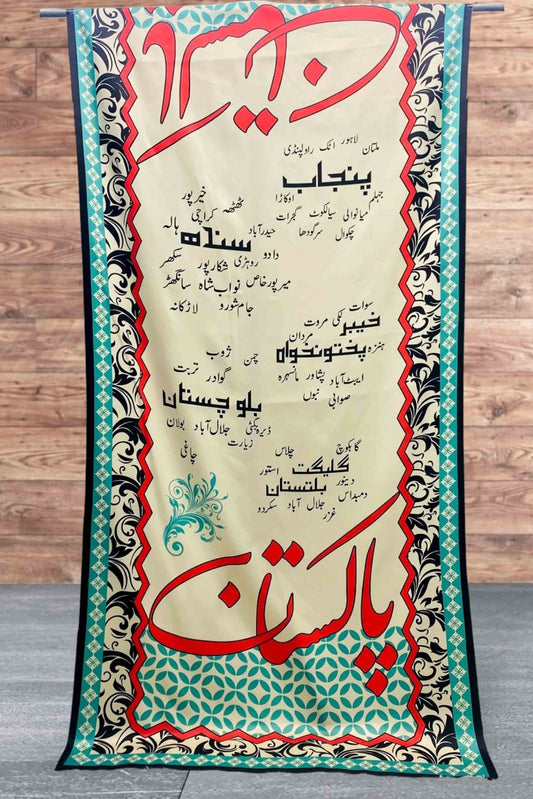 ملتان لاہور اٹک راولپنڈی
پنجاب
جہلم
اوکاڑا
میانوالی سیالکوٹ گجرات
چکوال سرگودھا
خیرپور
ٹھٹھہ کراچی
ہالہ
سندھ
حیدرآباد
دادو
روہڑی شکارپور سکھر
میرپورخاص نواب شاہ سانگھڑ
جام شورو لاڑکانہ
سوات
لکی مروت
خیبر
مردان
پختونخواہ
ہنزہ
ایبٹ آباد پشاور مانسہرہ
صوابی
چمن ژوب
گوادر تربت
بلوچستان
ڈیرہ بگٹی جلال آباد بولان
زیارت
چاغی
چلاس
گلگت
استور
دینور
بلتستان
جلال آباد سکردو
غزر
پاکستان